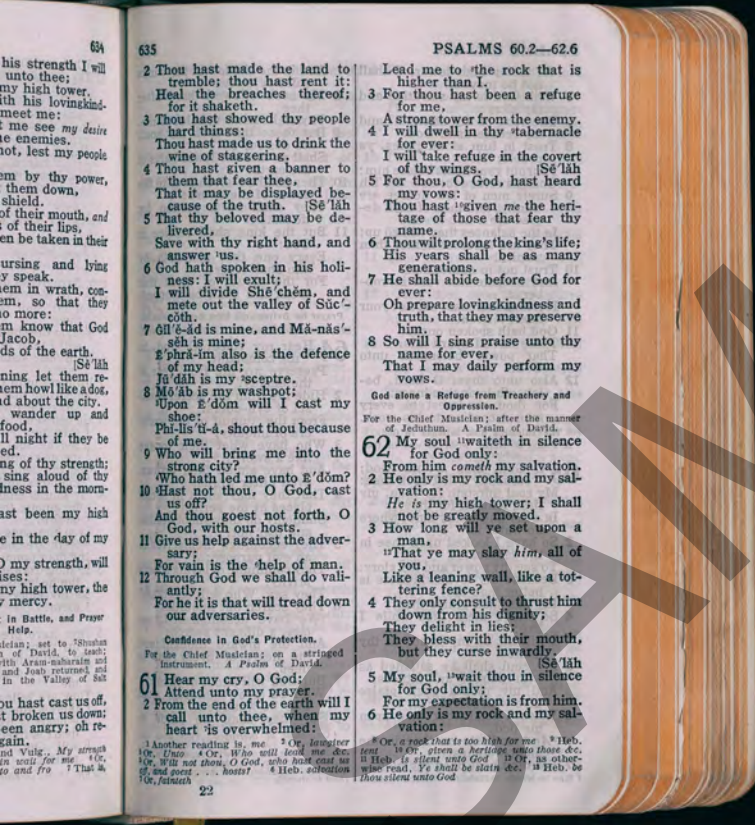 634
his strength I will
unto thee;
my high tower.
ith his lovingkind-
meet me:
t me see my desire
e enemies.
not, lest my people
em by thy power,
t them down,
shield.
of their mouth, and
s of their lips,
en be taken in their
ursing and lying
y speak.
hem in wrath, con-
em, so that they
no more:
em know that God
Jacob,
ds of the earth.
[Sē´läh
ning let them re-
hem howl like a dog,
nd about the city.
wander up and
food,
ll night if they be
ed.
ng of thy strength;
sing aloud of thy
dness in the morn-
ast been my high
e in the day of my
O my strength, will
ises:
my high tower, the
y mercy.
t in Battle, and Prayer
Help.
sician; set to ²Shushan
of David, to teach;
with Aram-naharaim and
and Joab returned, and
in the Valley of Salt
ou hast cast us off,
t broken us down;
een angry; oh re-
gain.
nd Vulg., My strength
in wait for me ⁴ Or,
to and fro ⁷ That is,
635
PSALMS 60.2—62.6
2 Thou hast made the land to
tremble; thou hast rent it:
Heal the breaches thereof;
for it shaketh.
3 Thou hast showed thy people
hard things:
Thou hast made us to drink the
wine of staggering.
4 Thou hast given a banner to
them that fear thee,
That it may be displayed be-
cause of the truth. [Sē´läh
5 That thy beloved may be de-
livered,
Save with thy right hand, and
answer ¹us.
6 God hath spoken in his holi-
ness: I will exult;
I will divide Shē´chĕm, and
mete out the valley of Sŭc´-
cōth.
7 Gĭl´ḗ-ăd is mine, and Mȧ-năs´-
sĕh is mine;
Ē´phrȧ-ĭm also is the defence
of my head;
Jū´däh is my ²sceptre.
8 Mō´ăb is my washpot;
³Upon Ē´dŏm will I cast my
shoe:
Phĭ-lĭs´tĭ-ȧ, shout thou because
of me.
9 Who will bring me into the
strong city?
⁴Who hath led me unto Ē´dŏm?
10 ⁵Hast not thou, O God, cast
us off?
And thou goest not forth, O
God, with our hosts.
11 Give us help against the adver-
sary;
For vain is the ⁶help of man.
12 Through God we shall do vali-
antly;
For he it is that will tread down
our adversaries.
Confidence in God's Protection.
For the Chief Musician; on a stringed
instrument. A Psalm of David.
61 Hear my cry, O God;
Attend unto my prayer.
2 From the end of the earth will I
call unto thee, when my
heart ⁷is overwhelmed:
¹ Another reading is, me ² Or, lawgiver
³ Or, Unto ⁴ Or, Who will lead me &c.
⁵ Or, Wilt not thou, O God, who hast cast us
off, and goest . . . hosts? ⁶ Heb. salvation
⁷ Or, fainteth
22
Lead me to ⁸the rock that is
higher than I.
3 For thou hast been a refuge
for me,
A strong tower from the enemy.
4 I will dwell in thy ⁹tabernacle
for ever:
I will take refuge in the covert
of thy wings. [Sē´läh
5 For thou, O God, hast heard
my vows:
Thou hast ¹⁰given me the heri-
tage of those that fear thy
name.
6 Thou wilt prolong the king's life;
His years shall be as many
generations.
7 He shall abide before God for
ever:
Oh prepare lovingkindness and
truth, that they may preserve
him.
8 So will I sing praise unto thy
name for ever,
That I may daily perform my
vows.
God alone a Refuge from Treachery and
Oppression.
For the Chief Musician; after the manner
of Jeduthun. A Psalm of David.
62 My soul ¹¹waiteth in silence
for God only:
From him cometh my salvation.
2 He only is my rock and my sal-
vation:
He is my high tower; I shall
not be greatly moved.
3 How long will ye set upon a
man,
¹²That ye may slay him, all of
you,
Like a leaning wall, like a tot-
tering fence?
4 They only consult to thrust him
down from his dignity;
They delight in lies;
They bless with their mouth,
but they curse inwardly.
[Sē´läh
5 My soul, ¹³wait thou in silence
for God only;
For my expectation is from him.
6 He only is my rock and my sal-
vation:
⁸ Or, a rock that is too high for me ⁹ Heb.
tent ¹⁰ Or, given a heritage unto those &c.
¹¹ Heb. is silent unto God ¹² Or, as other-
wise read, Ye shall be slain &c. ¹³ Heb. be
thou silent unto God